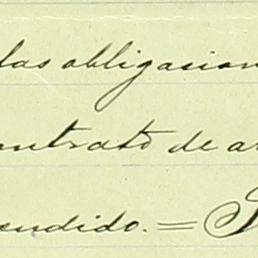 las obligacion
ontrato de a
endido. =